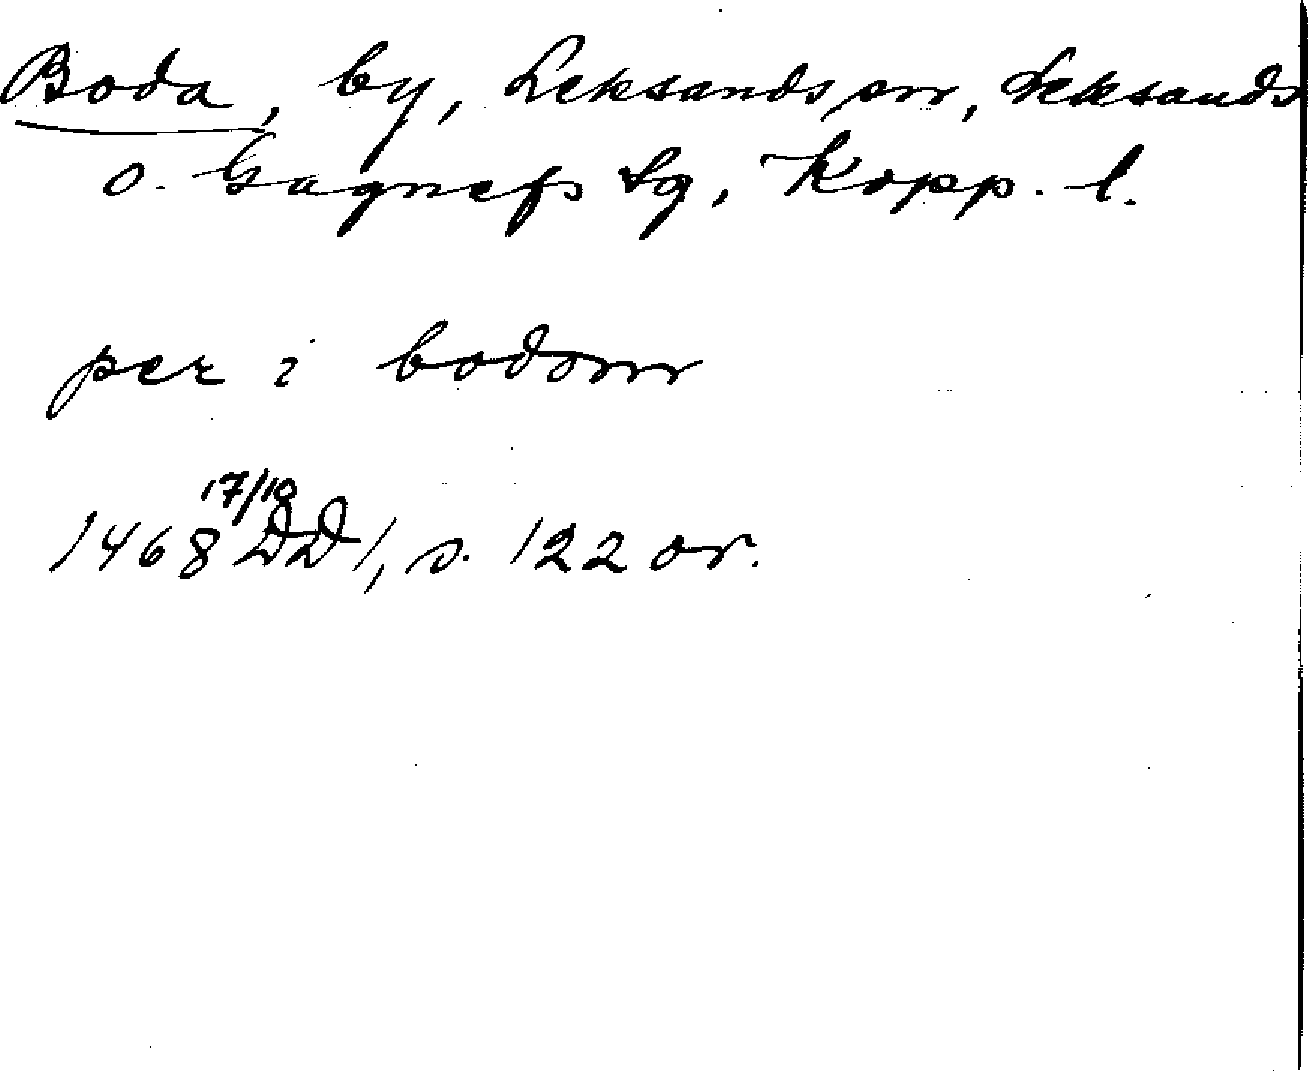 Boda, by, Leksands sn, Leksands
o. Gagnefs tg, Kopp. l.
per i bodom
1468 17/10 DD 1, s. 122 or.